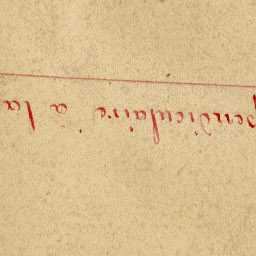 pendiculaire à la